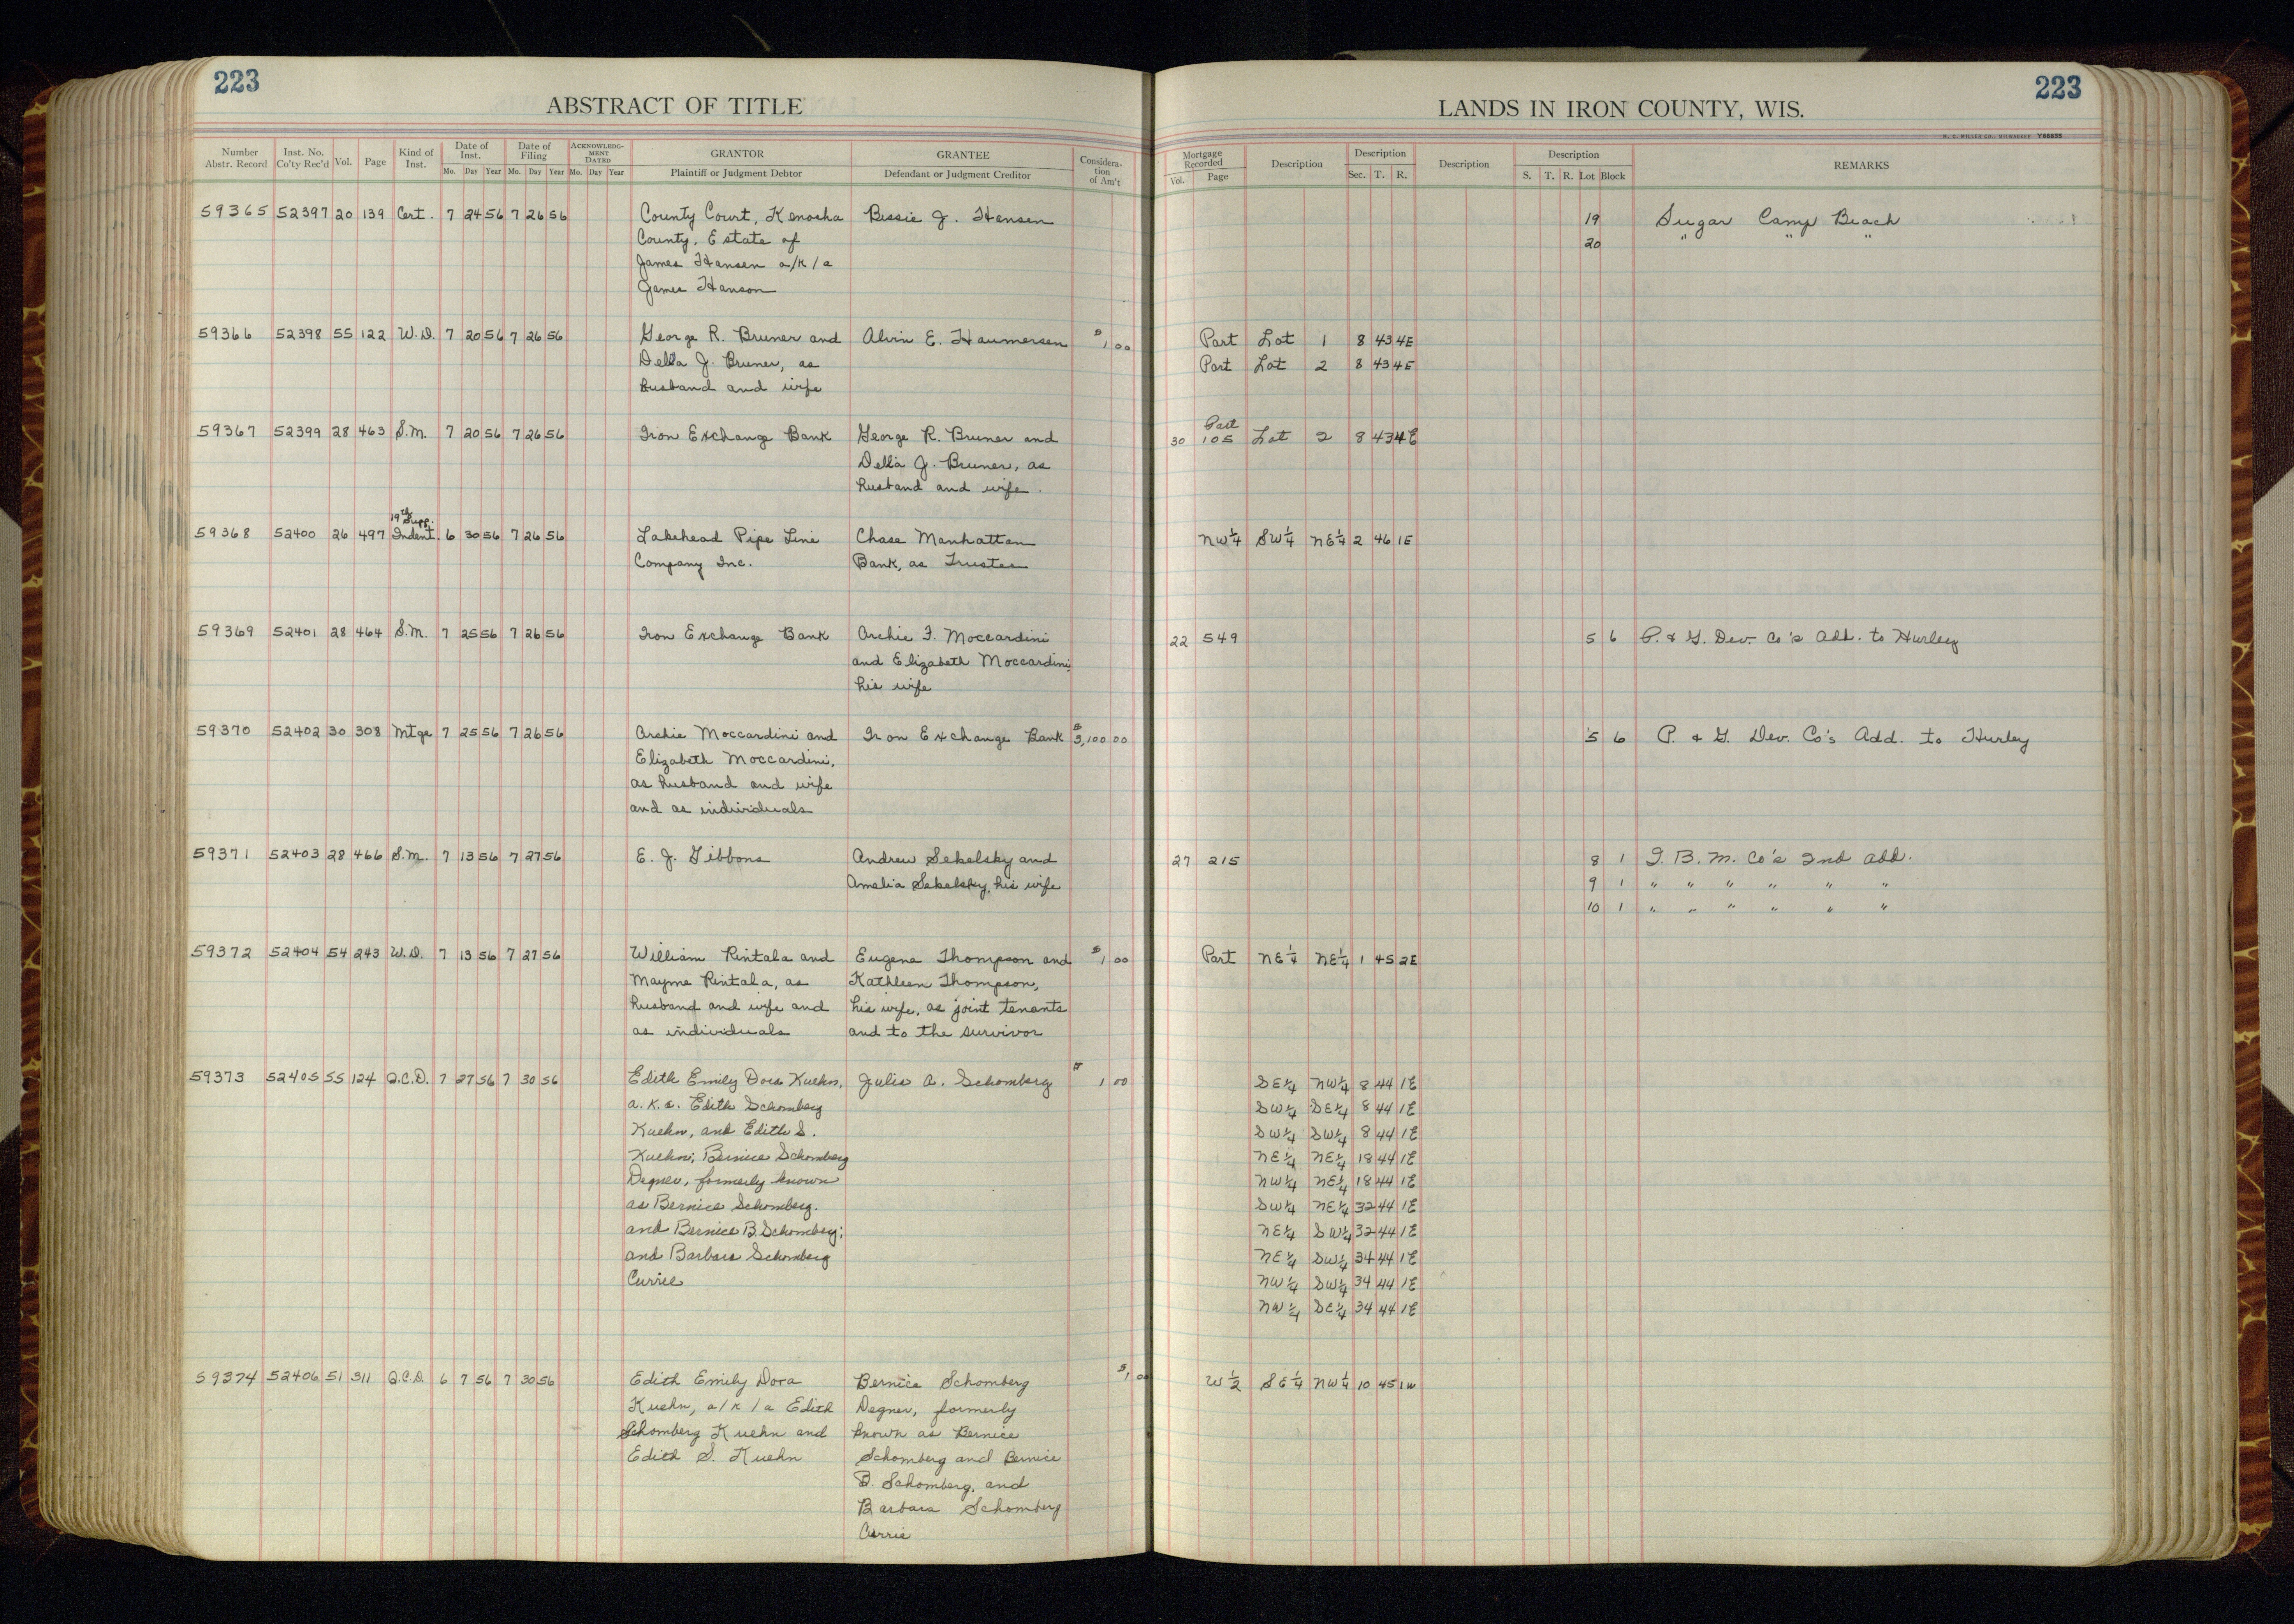 223
ABSTRACT OF TITLE
Number Abstr. Record Inst. No. Co'ty Rec'd Vol. Page Kind of Inst. Date of Inst. Mo. Day Year Date of Filing Mo. Day Year ACKNOWLEDGMENT DATED Mo. Day Year GRANTOR Plaintiff or Judgment Debtor GRANTEE Defendant or Judgment Creditor Consideration of Am't
59365 52397 20 139 Cert. 7 24 56 7 26 56 County Court, Kenosha Bessie J. Hansen
County, Estate of
James Hansen a/k/a
James Hanson
59366 52398 55 122 W.D. 7 20 56 7 26 56 George R. Bruner and Alvin E. Haumersen $1 00
Della J. Bruner, as
husband and wife
59367 52399 28 463 S.M. 7 20 56 7 26 56 Iron Exchange Bank George R. Bruner and
Della J. Bruner, as
husband and wife.
19th Supp.
59368 52400 26 497 Indent. 6 30 56 7 26 56 Lakehead Pipe Line Chase Manhattan
Company Inc. Bank, as Trustee
59369 52401 28 464 S.M. 7 25 56 7 26 56 Iron Exchange Bank Archie F. Moccardini
and Elizabeth Moccardini,
his wife
59370 52402 30 308 Mtge 7 25 56 7 26 56 Archie Moccardini and Iron Exchange Bank $3,100 00
Elizabeth Moccardini,
as husband and wife
and as individuals
59371 52403 28 466 S.M. 7 13 56 7 27 56 E. J. Gibbons Andrew Sekelsky and
Amelia Sekelsky, his wife
59372 52404 54 243 W.D. 7 13 56 7 27 56 William Rintala and Eugene Thompson and $1 00
Mayme Rintala, as Kathleen Thompson,
husband and wife and his wife, as joint tenants
as individuals and to the survivor
59373 52405 55 124 Q.C.D. 7 27 56 7 30 56 Edith Emily Dora Kuehn, Julia A. Schomberg 1 00
a.k.a. Edith Schomberg
Kuehn, and Edith S.
Kuehn; Bernice Schomberg
Degner, formerly known
as Bernice Schomberg.
and Bernice B. Schomberg;
and Barbara Schomberg
Currie
59374 52406 51 311 Q.C.D. 6 7 56 7 30 56 Edith Emily Dora Bernice Schomberg $1 00
Kuehn, a/k/a Edith Degner, formerly
Schomberg Kuehn and known as Bernice
Edith S. Kuehn Schomberg and Bernice
B. Schomberg, and
Barbara Schomberg
Currie
223
LANDS IN IRON COUNTY, WIS.
H. C. MILLER CO., MILWAUKEE Y66655
Mortgage Recorded Vol. Page Description Description Sec. T. R. Description Description S. T. R. Lot Block REMARKS
19 Sugar Camp Beach
20 " " "
Part Lot 1 8 43 4E
Part Lot 2 8 43 4E
Part
30 105 Lot 2 8 43 4E
NW¼ SW¼ NE¼ 2 46 1E
22 549 5 6 P. & G. Dev. Co's Add. to Hurley
5 6 P. & G. Dev. Co's Add. to Hurley
27 215 8 1 I. B. M. Co's 2nd Add.
9 1 " " " " " "
10 1 " " " " " "
Part NE¼ NE¼ 1 45 2E
SE¼ NW¼ 8 44 1E
SW¼ SE¼ 8 44 1E
SW¼ SW¼ 8 44 1E
NE¼ NE¼ 18 44 1E
NW¼ NE¼ 18 44 1E
SW¼ NE¼ 32 44 1E
NE¼ SW¼ 32 44 1E
NE¼ SW¼ 34 44 1E
NW¼ SW¼ 34 44 1E
NW¼ SE¼ 34 44 1E
W½ SE¼ NW¼ 10 45 1W